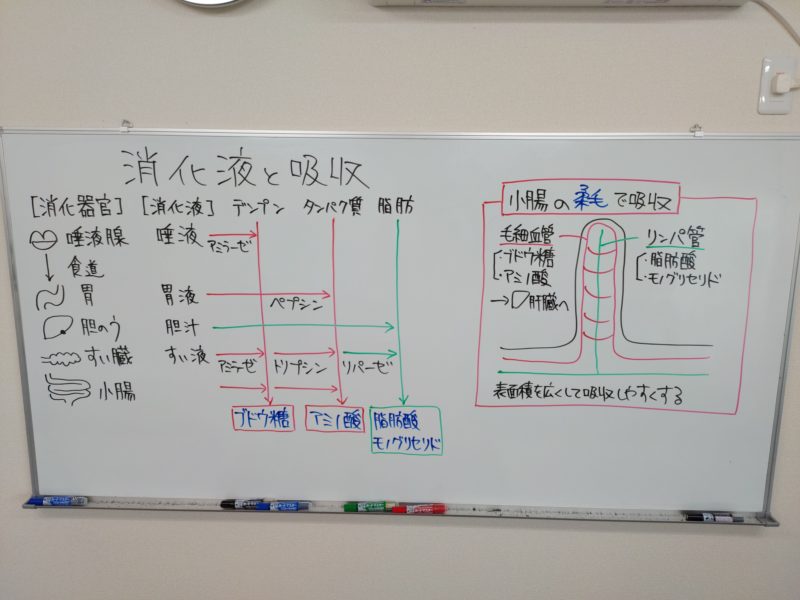 消化液と吸収
[消化器官] [消化液] デンプン タンパク質 脂肪
唾液腺 唾液
アミラーゼ
食道
胃 胃液
ペプシン
胆のう 胆汁
すい臓 すい液
アミラーゼ トリプシン リパーゼ
小腸
ブドウ糖 アミノ酸 脂肪酸
モノグリセリド
小腸の柔毛で吸収
毛細血管
・ブドウ糖
・アミノ酸
→肝臓へ
リンパ管
・脂肪酸
・モノグリセリド
表面積を広くして吸収しやすくする